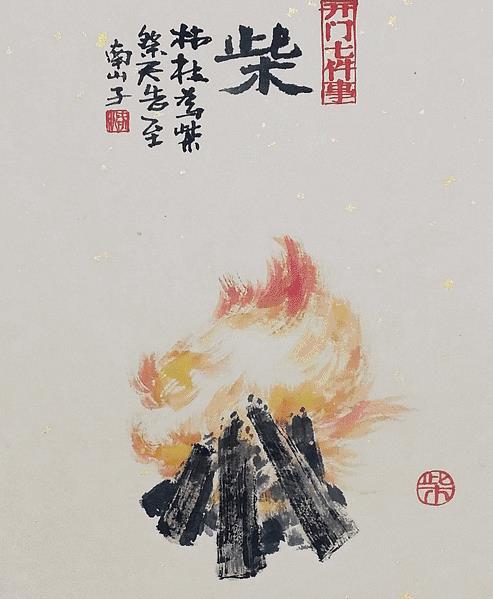 开门七件事
柴
枯枝為柴
祭天告至
南山子
柴